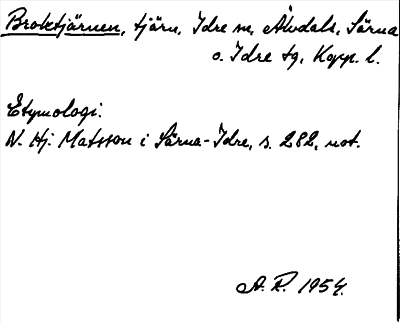 Broktjärnen, tjärn, Idre sn, Älvdals, Särna
o. Idre tg, Kopp. l.
Etymologi.
N. Hj. Matsson i Särna-Idre, s. 282, not.
A. R. 1954.